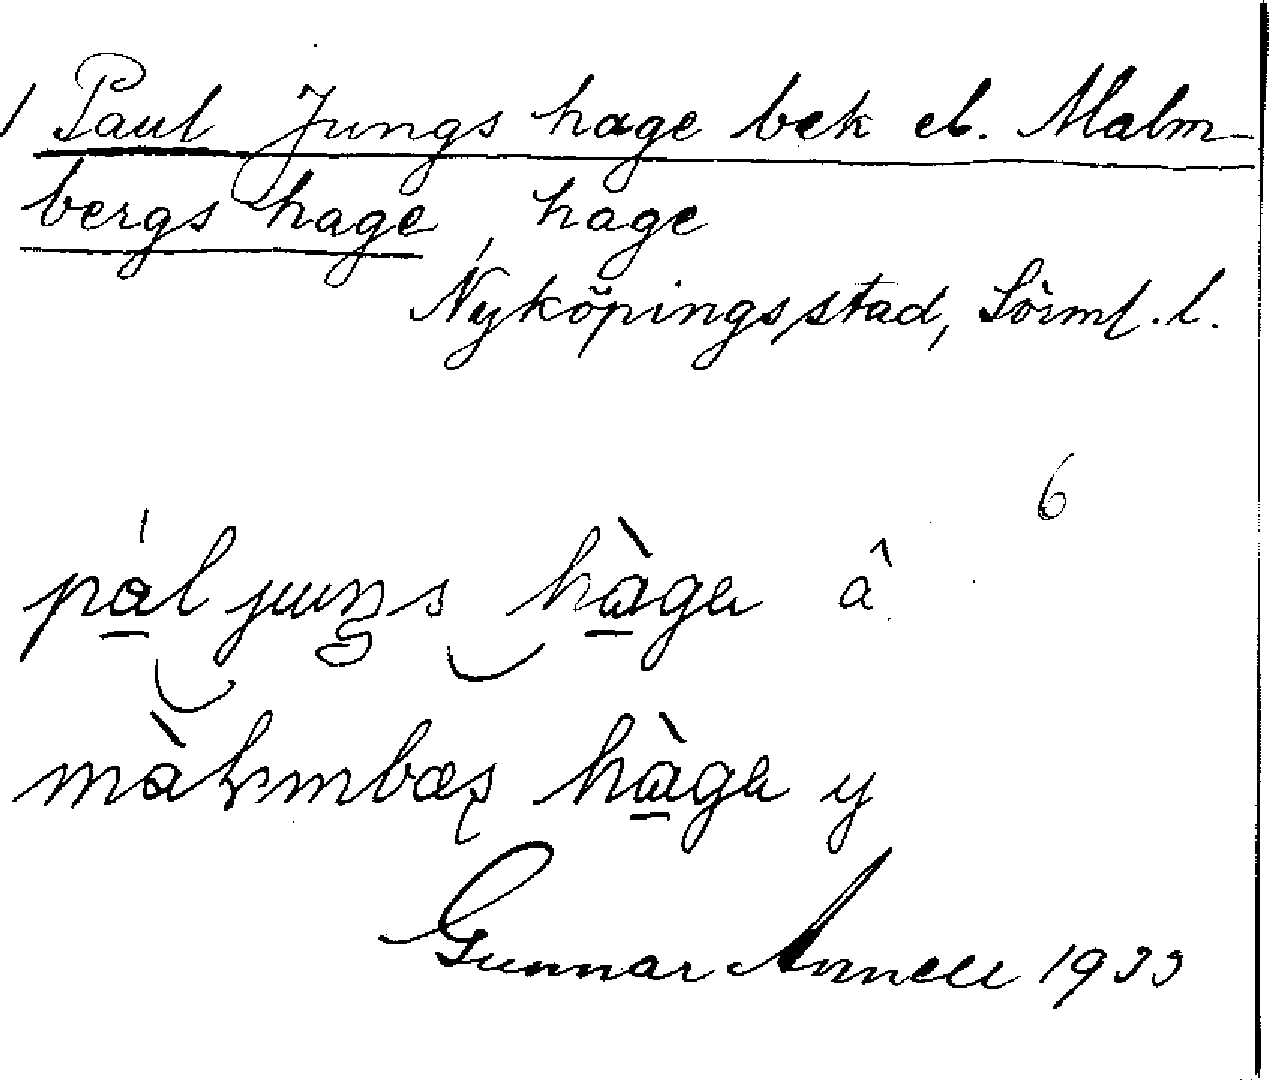 Paul Jungs hage bek el. Malm-
bergs hage, hage
Nyköpings stad, Sörml. l.
6
pál juŋs hàga â
màlmbæs hàga y
Gunnar Annell 1933